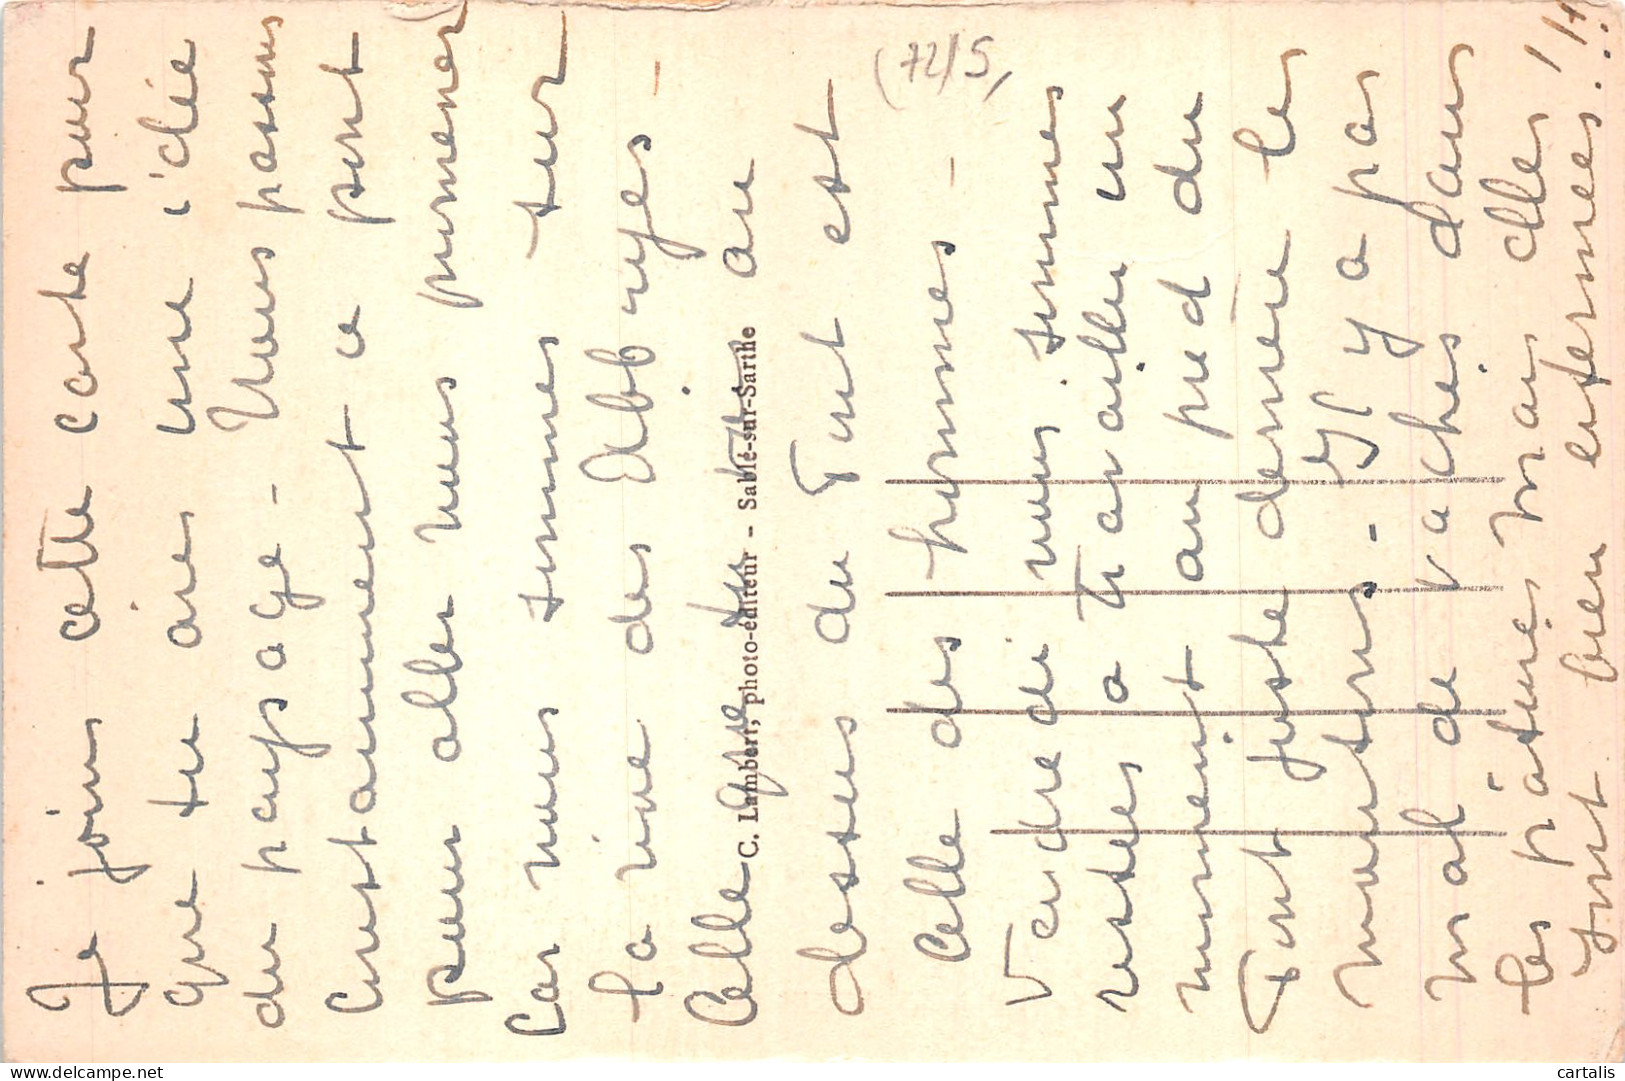 Je joins cette carte pour
que tu aies une idée
du paysage - Nous passons
constamment ce pont
pour aller nous promener
Car nous sommes sur
la rive des Abbayes -
Celle que tu vois au
dessus du Pont est
Celle des hommes -
Vendredi nous sommes
restées à travailler un
moment au pied du
Pont juste derrière les
moutons. - Il y a pas
mal de vaches dans
les pâtures mais elles
sont bien enfermées. !!!
C. Lambert, photo-éditeur - Sablé-sur-Sarthe
(72)5
delcampe.net
cartalis